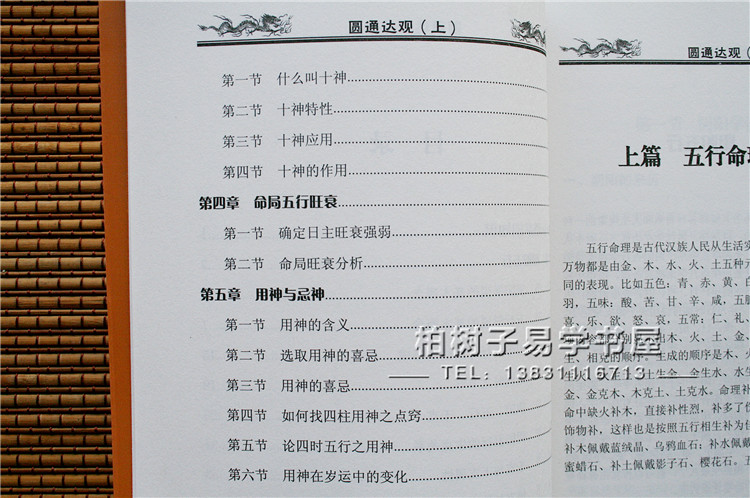 圆通达观(上)
第一节 什么叫十神
第二节 十神特性
第三节 十神应用
第四节 十神的作用
第四章 命局五行旺衰
第一节 确定日主旺衰强弱
第二节 命局旺衰分析
第五章 用神与忌神
第一节 用神的含义
第二节 选取用神的喜忌
第三节 用神的喜忌
第四节 如何找四柱用神之点窍
第五节 论四时五行之用神
第六节 用神在岁运中的变化
圆通达观(
上篇 五行命
五行命理是古代汉族人民从生活实
万物都是由金、木、水、火、土五种元
同的表现。比如五色:青、赤、黄、白
羽,五味:酸、苦、甘、辛、咸,五脏
喜、乐、欲、怒、哀,五常:仁、礼、
木、火、土、金、
生、相克的顺序。生成的顺序是木、火
生土、土生金、金生水、水生
金、金克木、木克土、土克水。命理补
命中缺火补木,直接补性烈,补多了伤
饰物补,这样也是按照五行相生补为佳
补木佩戴蓝绒晶、乌鸦血石;补水佩戴
蜜蜡石、补土佩戴影子石、樱花石。五
柏树子易学书屋
TEL:13831116713